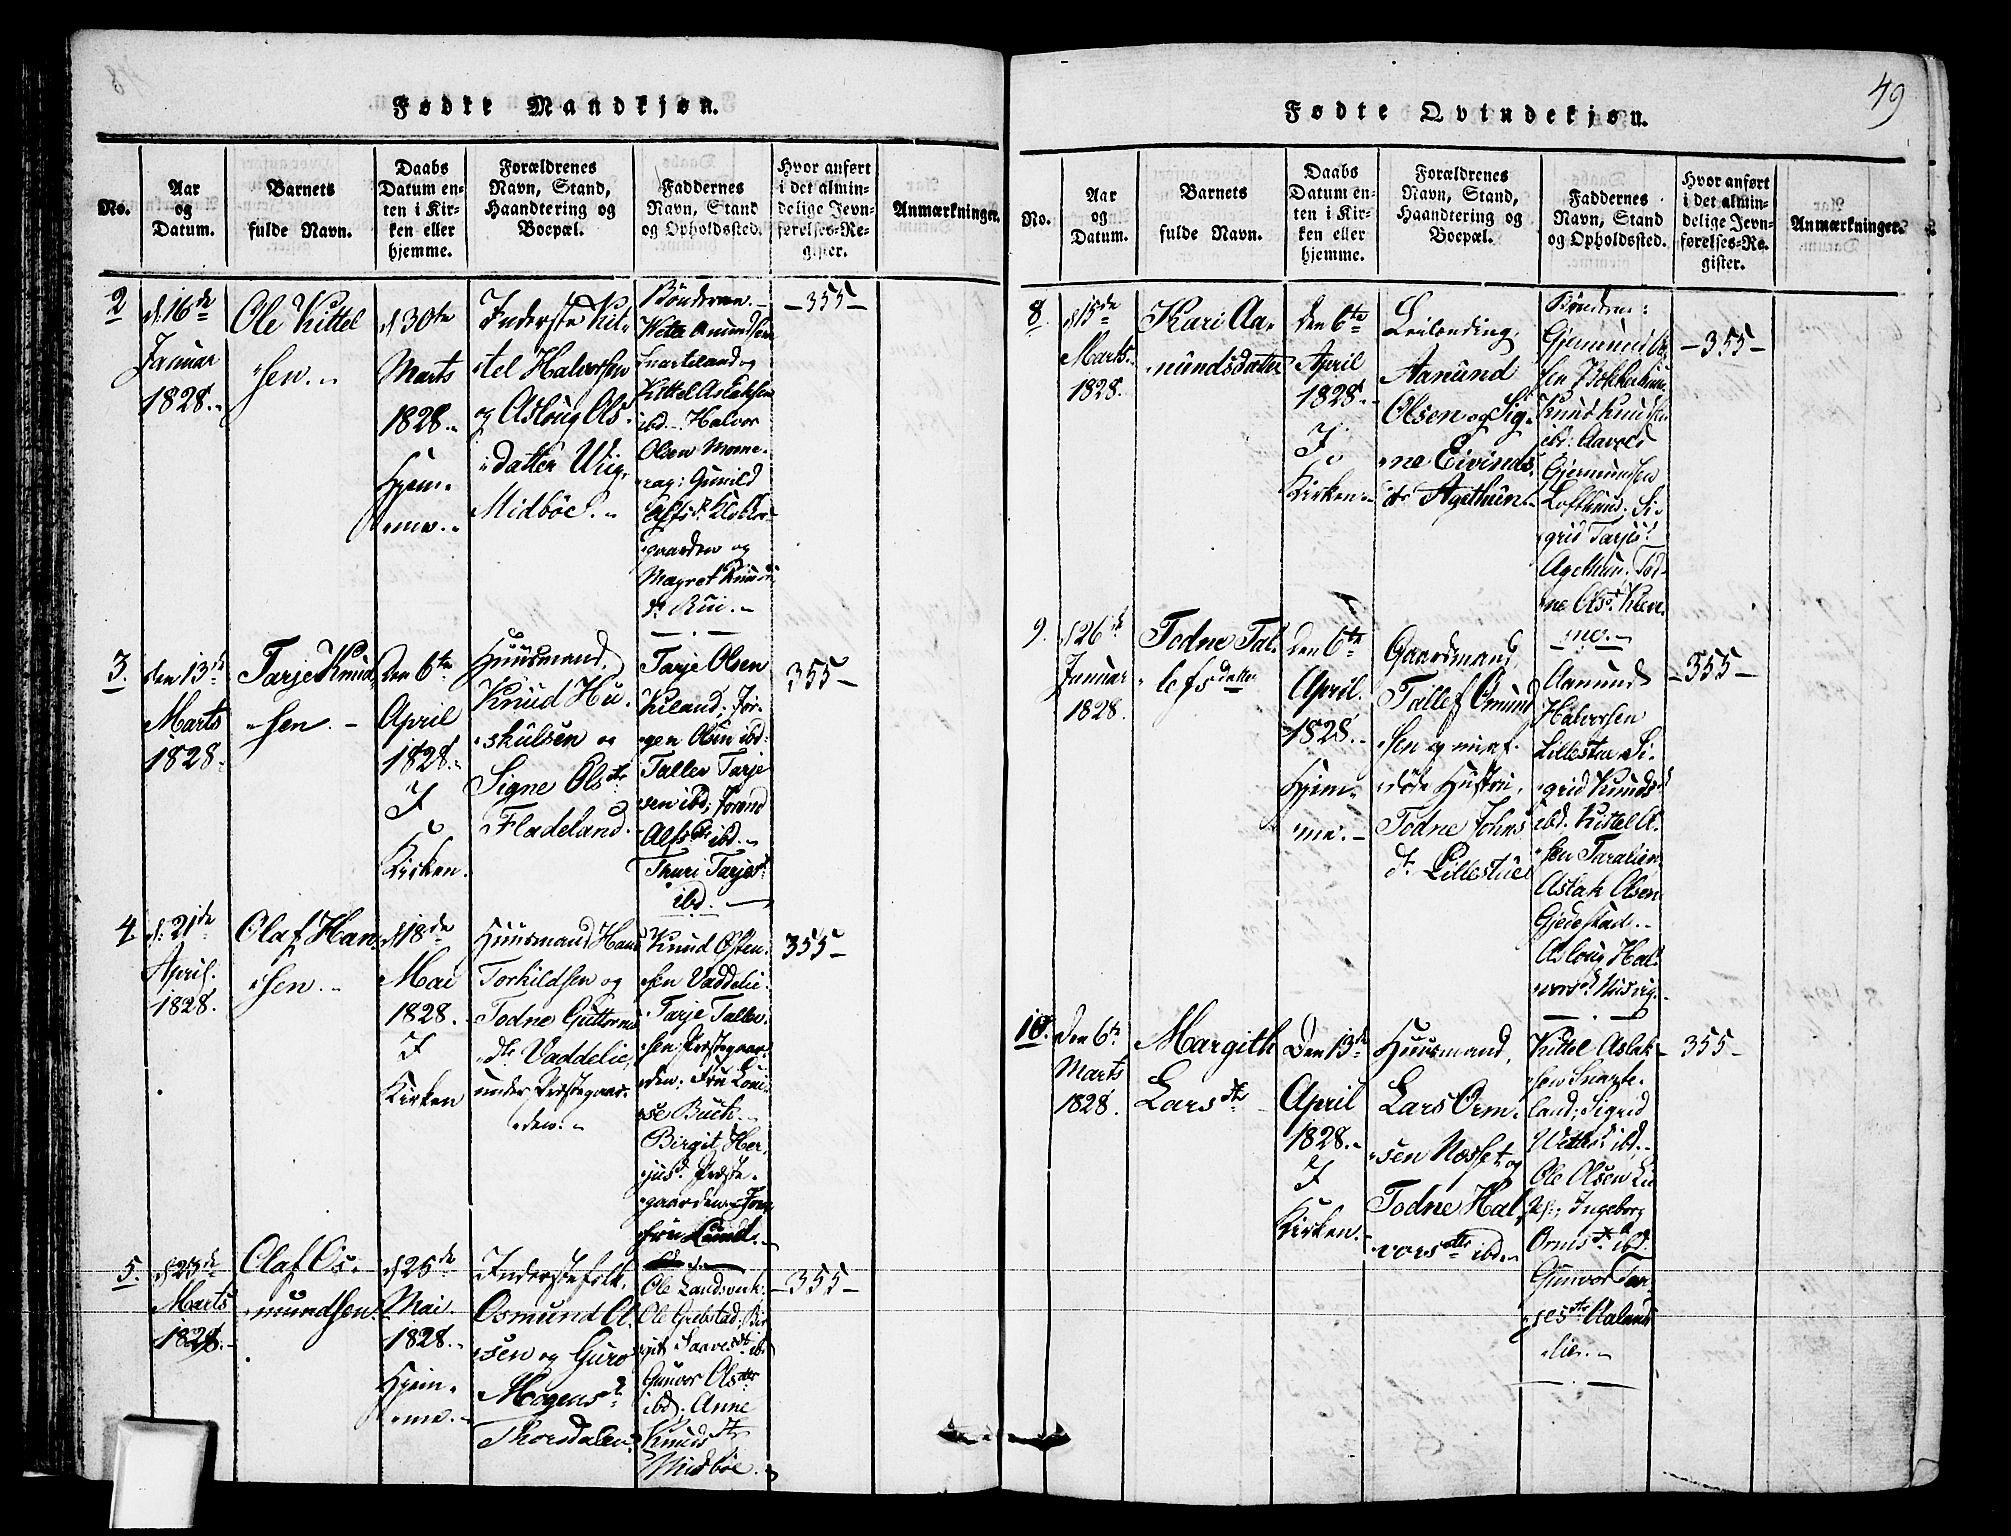 Fødte Mandkjøn.
No.
Aar
og
Datum.
Barnets
fulde Navn.
Daabs
Datum en-
ten i Kir-
ken eller
hjemme.
Forældrenes
Navn, Stand,
Haandtering og
Boepæl.
Faddernes
Navn, Stand
og Opholdssted.
Hvor anført
i det almin-
delige Jevn-
førelses-Re-
gister.
Anmærkninger.
2
d. 16de
Januar
1828.
Ole Kittel
sen.
d 30te
Marts
1828.
Hjem-
me.
Inderste Kit-
tel Halvorsen
og Aslöug Ols-
datter Uig,
Midböe.
Bönderne
Aanundsen
Snarteland og
Kittel Aslaksen
ibd. Halvor
Olsen Mome-
rag: Gunild
Alfsd. Klokker-
gaarden og
Magret Knuds
dr. Rui.
355
3.
den 13de
Marts
1828.
Tarje Knud
sen.
Den 6te
April
1828.
I
Kirken.
Huusmand,
Knud Hu-
skulsen og
Signe Olsdtr
Fladeland.
Tarje Olsen
Kiland. Jör-
gen Olsen ibd:
Tallev Tarje
sen ibd; Jorand
Alfsdtr ibd.
Thuri Tarjesd.
ibd.
355
4
d. 21de
April
1828.
Olaf Han
sen.
d 18de
Mai
1828.
I
Kirken
Huusmand Hans
Torkildsen og
Todne Guttorms
dtr Vaddelie,
under Præstegaar-
den.
Knud Östen-
sen Vaddelie.
Tarje Tallev-
sen Præstegaar-
den; Fru Loui-
se Buch.
Birgit Her-
jusd. Præste-
gaarden. Jom-
fru Lund.
355
5.
d 23de
Marts
1828.
Olaf Os-
mundsen.
d 25de
Mai.
1828.
Hjem-
me.
Inderstefolk,
Osmund Ol-
sen og Guro
Mogensd.
Thorsdalen.
Ole Landsverk.
Ole Grebstad; Bir
git Saavesdtr ibd
Gunvor Olsdtr
ibd. Anne
Knudsdtr
Midböe.
355
49
Fødte Qvindekjøn.
No.
Aar
og
Datum.
Barnets
fulde Navn.
Daabs
Datum en-
ten i Kir-
ken eller
hjemme.
Forældrenes
Navn, Stand,
Haandtering og
Boepæl.
Faddernes
Navn, Stand
og Opholdssted.
Hvor anført
i det almin-
delige Jevn-
førelses-Re-
gister.
Anmærkninger.
8.
d 15de
Marts
1828.
Kari Aa-
nundsdatter
Den 6te
April
1828.
I
Kirken.
Leilending,
Aanund
Olsen og Sig-
ne Eivinds
dtr Agethun.
Bönderne:
Gjermund Ol
sen
Knud Knudsen
ibd: Aavold
Gjermundsen
Lofthuus. Si-
grid Tarjesd.
Agethun. Tod-
ne Olsd.
355
9.
d 26de
Januar
1828.
Todne Tal-
lefsdatter
Den 6te
April
1828.
Hjem-
me.
Gaardmand,
Tallef Omund
sen og nu af-
döde Hustru,
Todne Johns
dtr Lillestue
Aanund
Halvorsen
Lillestue. Si-
grid Knudsd
ibd. Kittel Ol-
sen Taralien.
Aslak Olsen
Gjedestad.
Aslöug Hal-
vorsd.
355
10.
Den 6te
Marts
1828.
Margith
Larsdtr
Den 13de
April
1828.
I
Kirken.
Huusmand,
Lars Orm-
sen Næsset og
Todne Hal-
vorsdtr ibd.
Kittel Aslak-
sen Snarte-
land; Sigrid
ibd.
Ole Olsen
Ingeborg
Ormsdtr ibd.
Gunvor Tar-
jesdtr Aaland
lie.
355